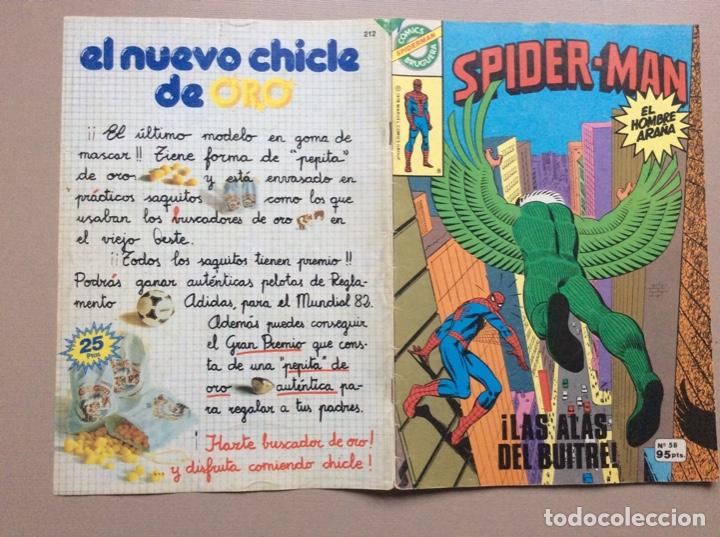 212
el nuevo chicle
de ORO
¡¡ El último modelo en goma de
mascar!! Tiene forma de "pepita"
de oro y está envasado en
prácticos saquitos como los que
usaban los buscadores de oro en
el viejo Oeste.
¡¡Todos los saquitos tienen premio!!
Podrás ganar auténticas pelotas de Regla-
mento Adidas, para el Mundial 82.
Además puedes conseguir
el Gran Premio que cons-
ta de una "pepita" de
oro auténtica pa-
ra regalar a tus padres.
25
Ptas
¡Hazte buscador de oro!
...y disfruta comiendo chicle!
COMICS
SPIDERMAN
BRUGUERA
SPIDER-MAN
EL
HOMBRE
ARAÑA
¡LAS ALAS
DEL BUITRE!
Nº 58
95 pts.
todocoleccion